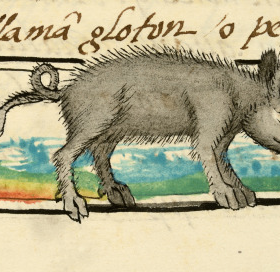 llamā gloton 'o pe